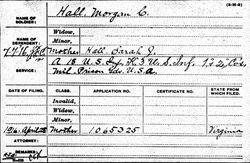 (3-16-2)
NAME OF SOLDIER: Hall, Morgan C.
NAME OF DEPENDENT: Widow,
Minor,
Mother Hall, Sarah J.
SERVICE: A 18 U.S. Inf. K 3 U.S. Inf. 1 & 2 Cos.
Mil. Prison Gds. U.S.A.
DATE OF FILING. CLASS. APPLICATION NO. CERTIFICATE NO. STATE FROM WHICH FILED.
Invalid,
Widow,
Minor,
1916 April Mother 1065325 Virginia
ATTORNEY:
REMARKS: